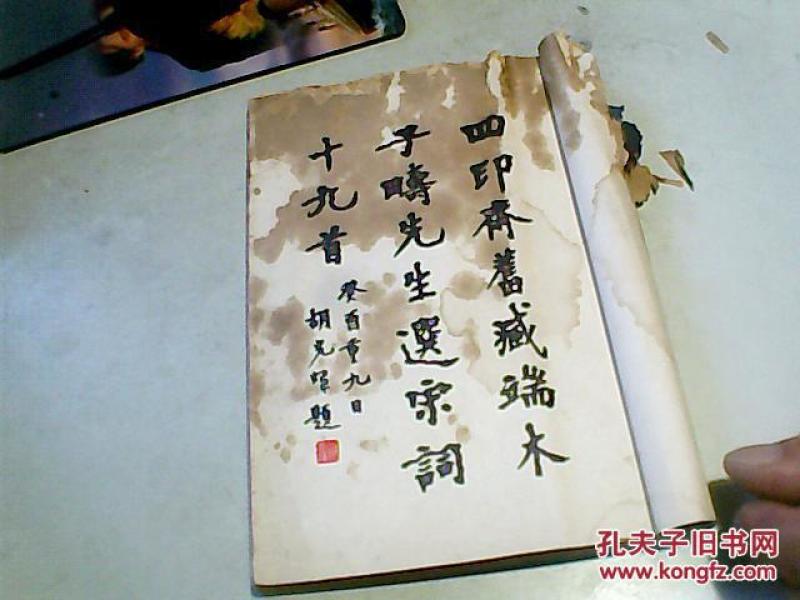 四印齋舊藏端木
子疇先生選宋詞
十九首
癸酉重九日
胡光煒題
孔夫子旧书网
www.kongfz.com